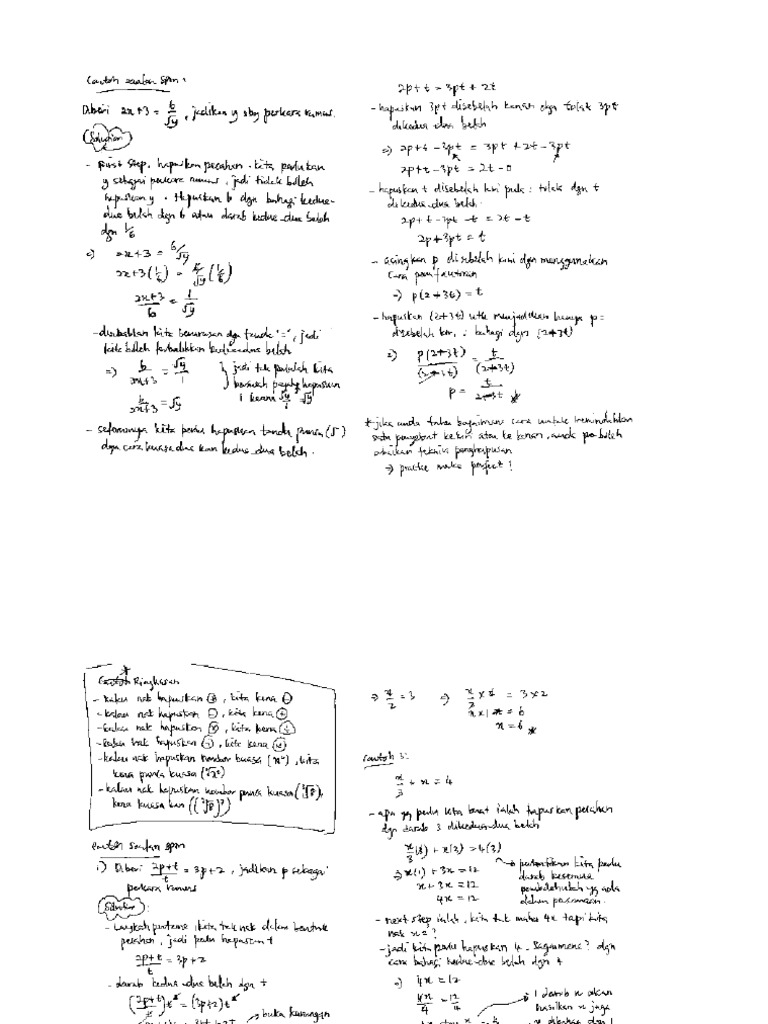 Contoh soalan SPM :
Diberi 2x+3 = 6/√y , jadikan y sbg perkara rumus.
Solution
- First step, hapuskan pecahan. Kita perlukan
y sebagai perkara rumus, jadi tidak boleh
hapuskan y. Hapuskan 6 dgn bahagi kedua-
dua belah dgn 6 atau darab kedua-dua belah
dgn 1/6
2x+3 = 6/√y
2x+3 (1/6) = 6/√y (1/6)
2x+3/6 = 1/√y
kita boleh terbalikkan kedua-dua belah
=> 6/2x+3 = √y/1
6/2x+3 = √y
} jadi tak perlulah kita
1 kerana √y/1 = √y
- seterusnya kita perlu hapuskan tanda punca (√)
dgn cara kuasa dua kan kedua-dua belah.
2p+t = 3pt + 2t
- hapuskan 3pt disebelah kanan dgn tolak 3pt
dikedua dua belah
=> 2p+t-3pt = 3pt + 2t - 3pt
2p+t-3pt = 2t-0
- hapuskan t disebelah kiri pula : tolak dgn t
dikedua-dua belah.
2p+t-3pt-t = 2t-t
2p+3pt = t
- asingkan p disebelah kiri dgn menggunakan
cara pemfaktoran
-> p(2+3t) = t
- hapuskan (2+3t) utk menjadikan hanya p=
disebelah kiri, ∴ bahagi dgn (2+3t)
=> p(2+3t)/(2+3t) = t/(2+3t)
p = t/2+3t *
* jika anda tahu bagaimana cara untuk memindahkan
satu pengebut kekiri atau ke kanan, anda boleh
abaikan teknik penghapusan
=> practice make perfect!
Contoh Ringkasan
- kalau nak hapuskan +, kita kena -
- kalau nak hapuskan -, kita kena +
- kalau nak hapuskan ×, kita kena ÷
- kalau nak hapuskan ÷, kita kena ×
- kalau nak hapuskan nombor kuasa (x²), kita
kena punca kuasa
- kalau nak hapuskan nombor punca kuasa
kena kuasa kan
Contoh Soalan SPM
1) Diberi 2p+t/t = 3p+2, jadikan p sebagai
perkara rumus
Solution :
- Langkah pertama, kita tak nak dalam bentuk
pecahan, jadi perlu hapuskan t
2p+t/t = 3p+2
- darab kedua-dua belah dgn t
(2p+t/t)t = (3p+2)t
buka kurungan
=> x/2 = 3 => x/2 × 2 = 3×2
x×1 = 6
x = 6 *
Contoh 3:
x/3 + x = 4
- apa yg perlu kita buat ialah hapuskan pecahan
dgn darab 3 dikedua-dua belah
x/3(3) + x(3) = 4(3)
=> x(1) + 3x = 12
x+3x = 12
4x = 12
perhatikan kita perlu
darab kesemua
pembolehubah yg ada
dalam persamaan.
- next step ialah, kita tak mahu 4x tapi kita
nak x=?
- jadi kita perlu hapuskan 4. Bagaimana? dgn
cara bahagi kedua-dua belah dgn 4
=> 4x = 12
4x/4 = 12/4
1 darab x akan
hasilkan x juga